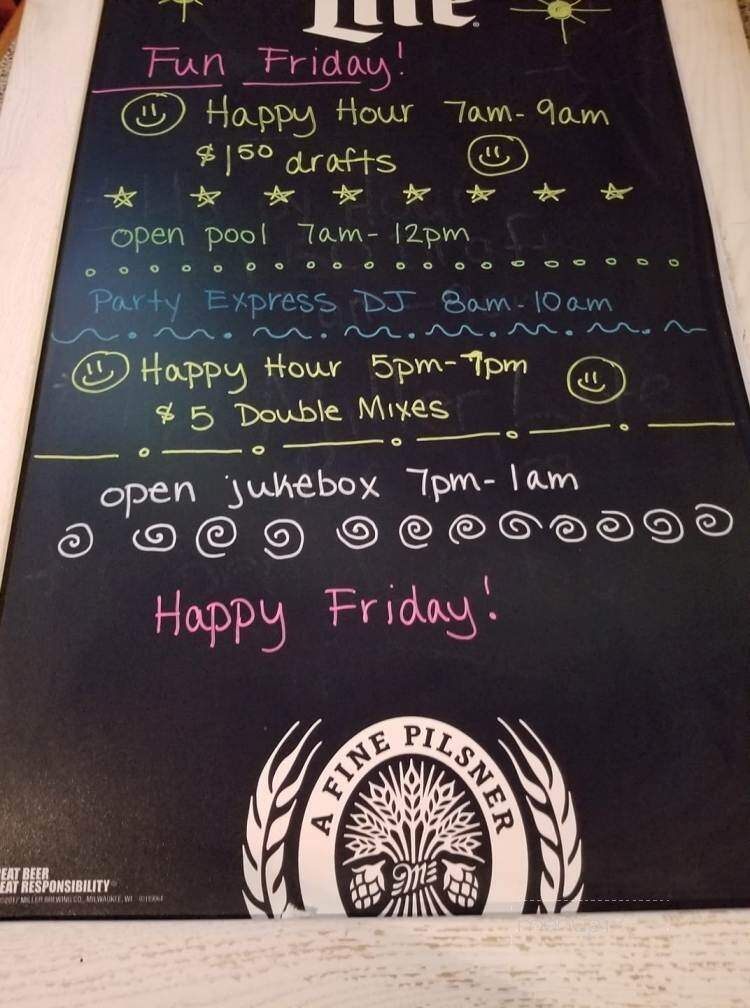 Lite
Fun Friday!
Happy Hour 7am-9am
$1 50 drafts
open pool 7am-12pm
Party Express DJ 8am-10am
Happy Hour 5pm-7pm
$5 Double Mixes
open jukebox 7pm-1am
Happy Friday!
A FINE PILSNER
EAT BEER
EAT RESPONSIBILITY
MILLER BREWING CO., MILWAUKEE, WI